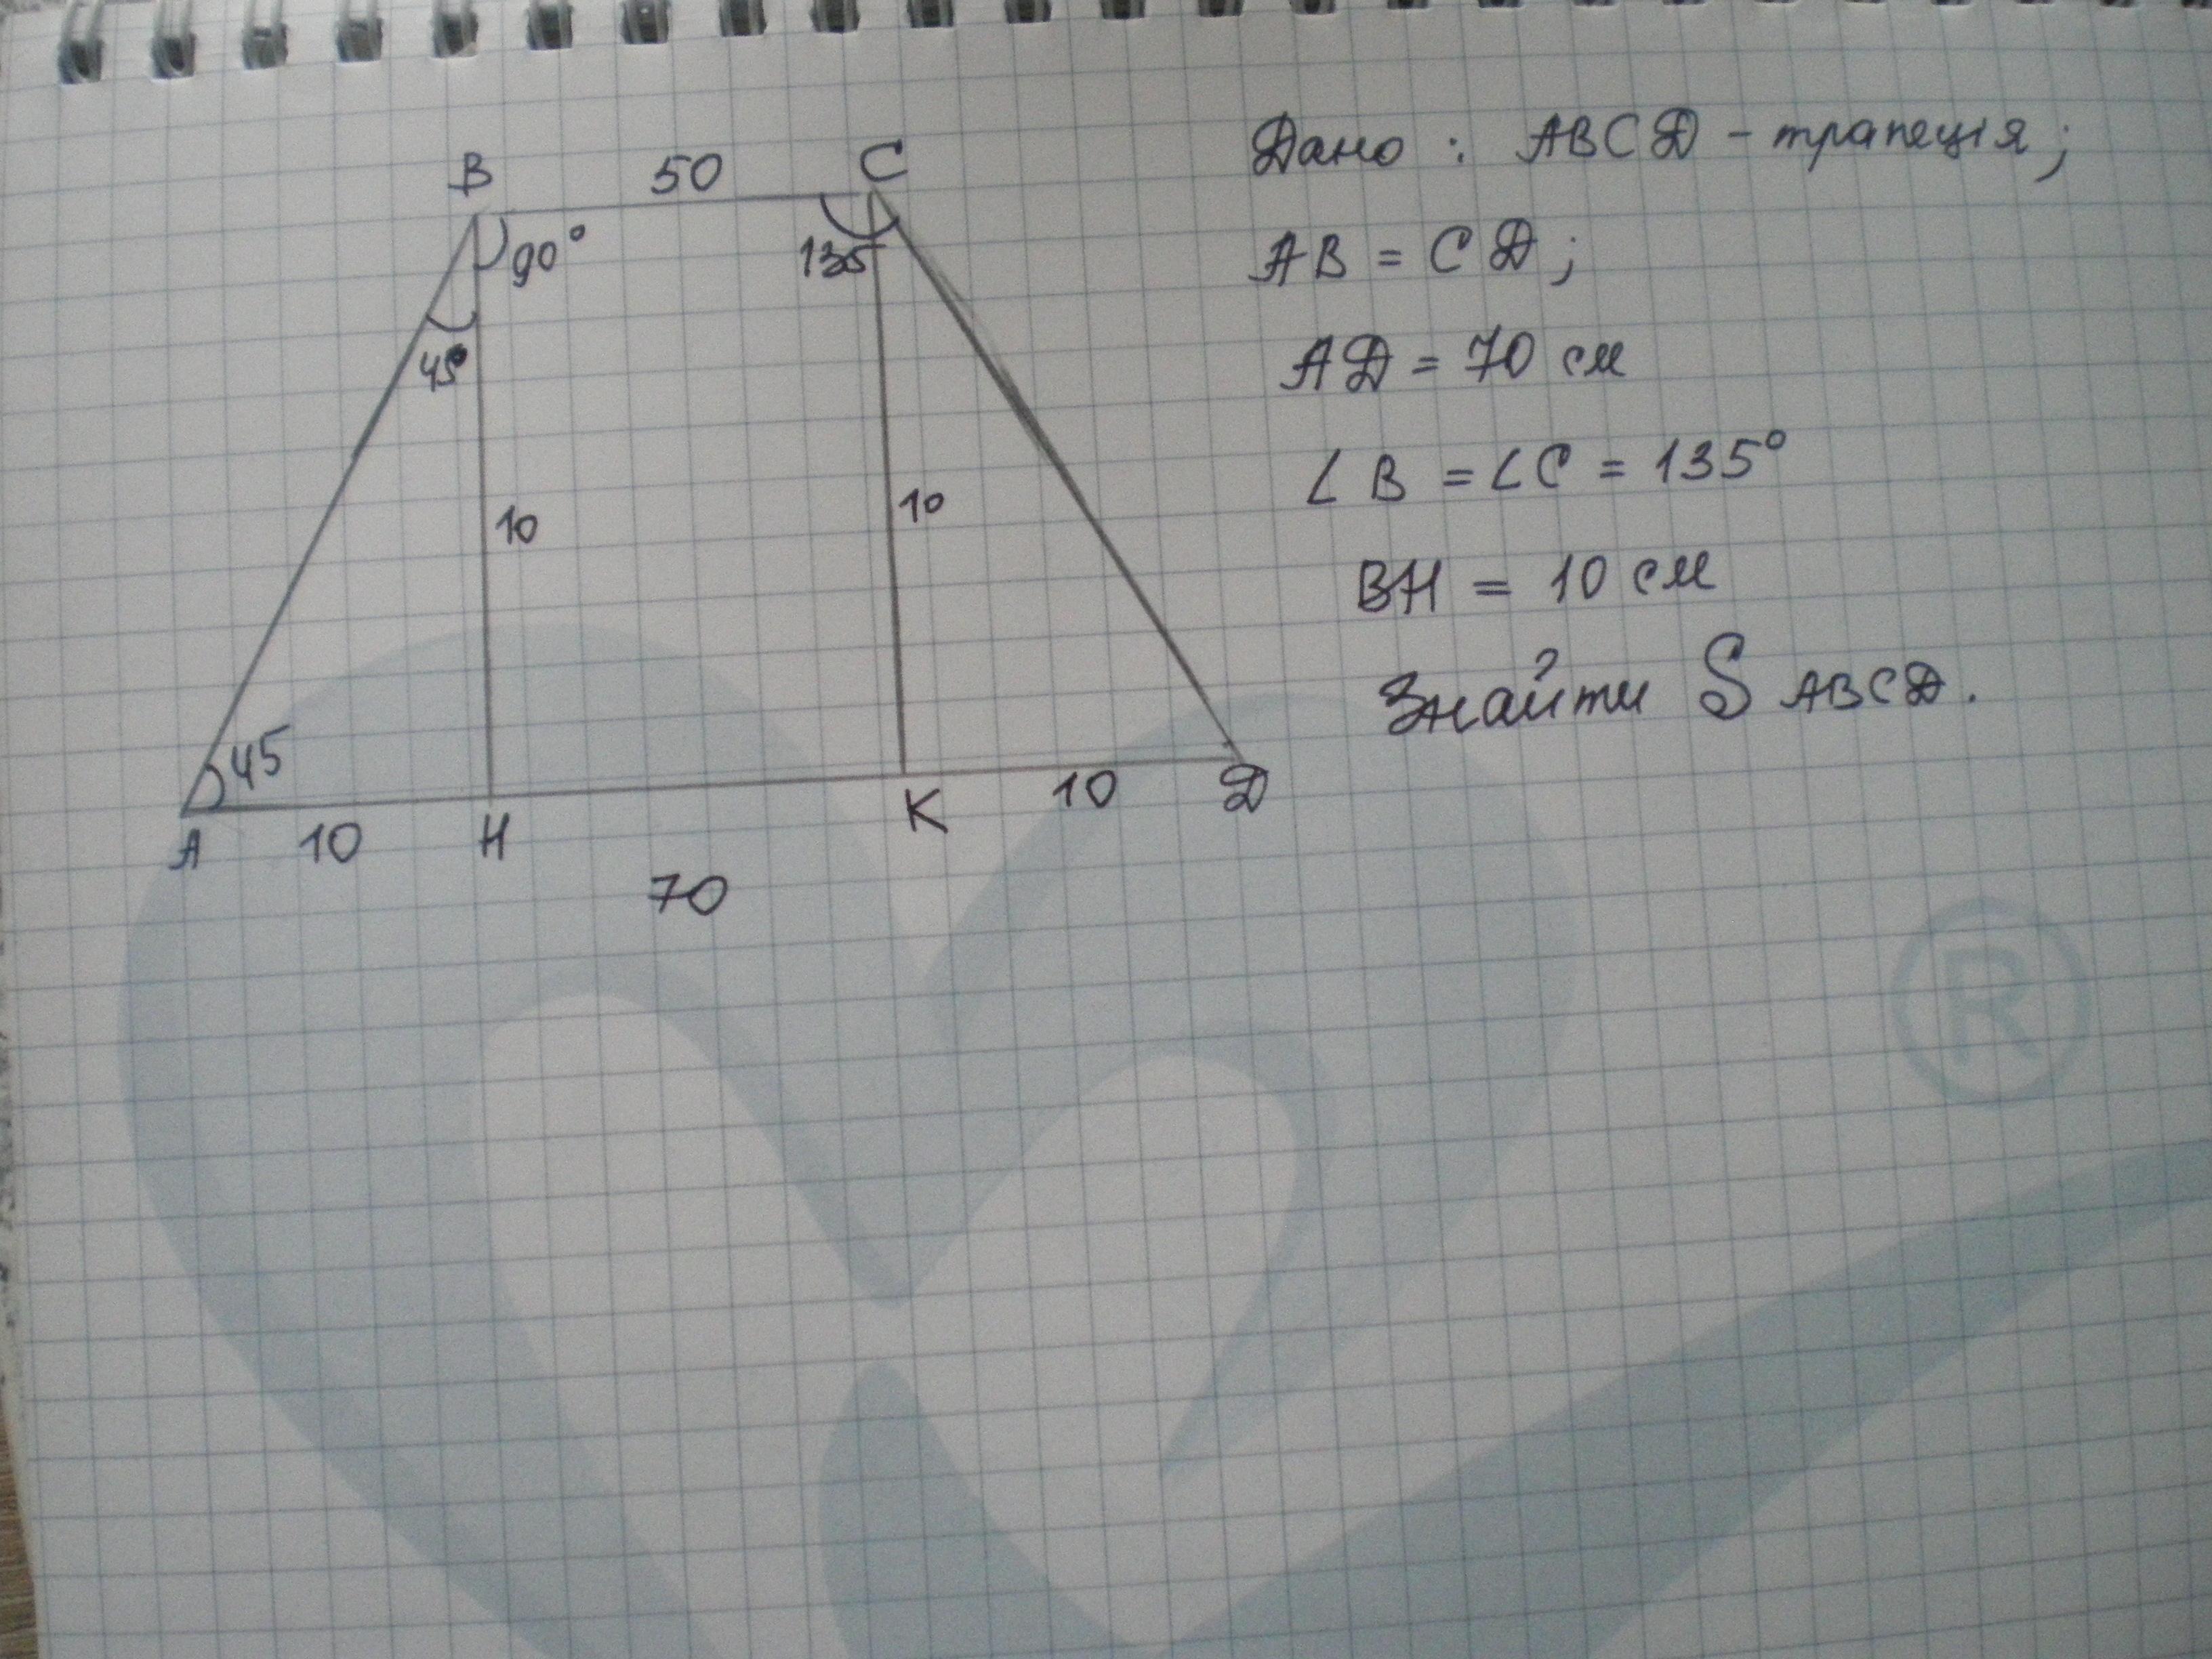 B 50 C
90°
135
45°
10
10
45
A 10 H K 10 D
70
Дано : ABCD - трапеція ;
AB = CD ;
AD = 70 см
∠ B = ∠ C = 135°
BH = 10 см
Знайти S ABCD .
®